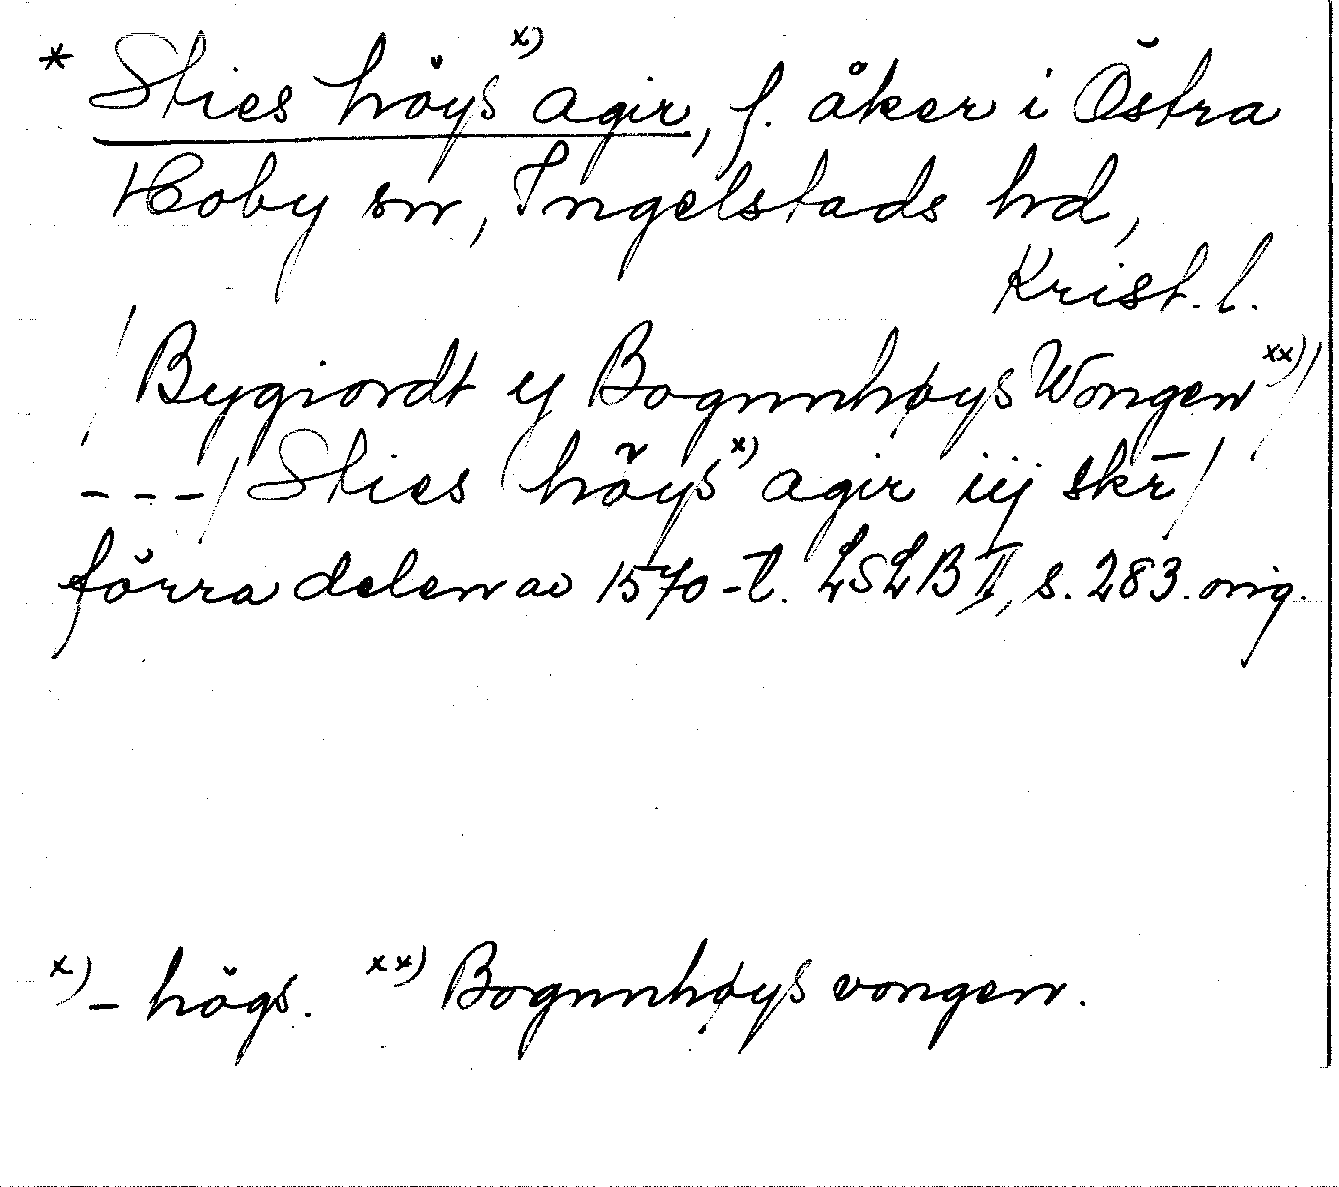 * Sties höys x) agir, f. åker i Östra
Hoby sn, Ingelstads hd,
Krist. l.
/ Bygiordt y Bognnhøys Wongen xx) /
- - - / Sties höys x) agir iij skr̄ /
förra delen av 1570-t. LSLB II, s. 283. orig.
x) - högs. xx) Bognnhøys vongen.